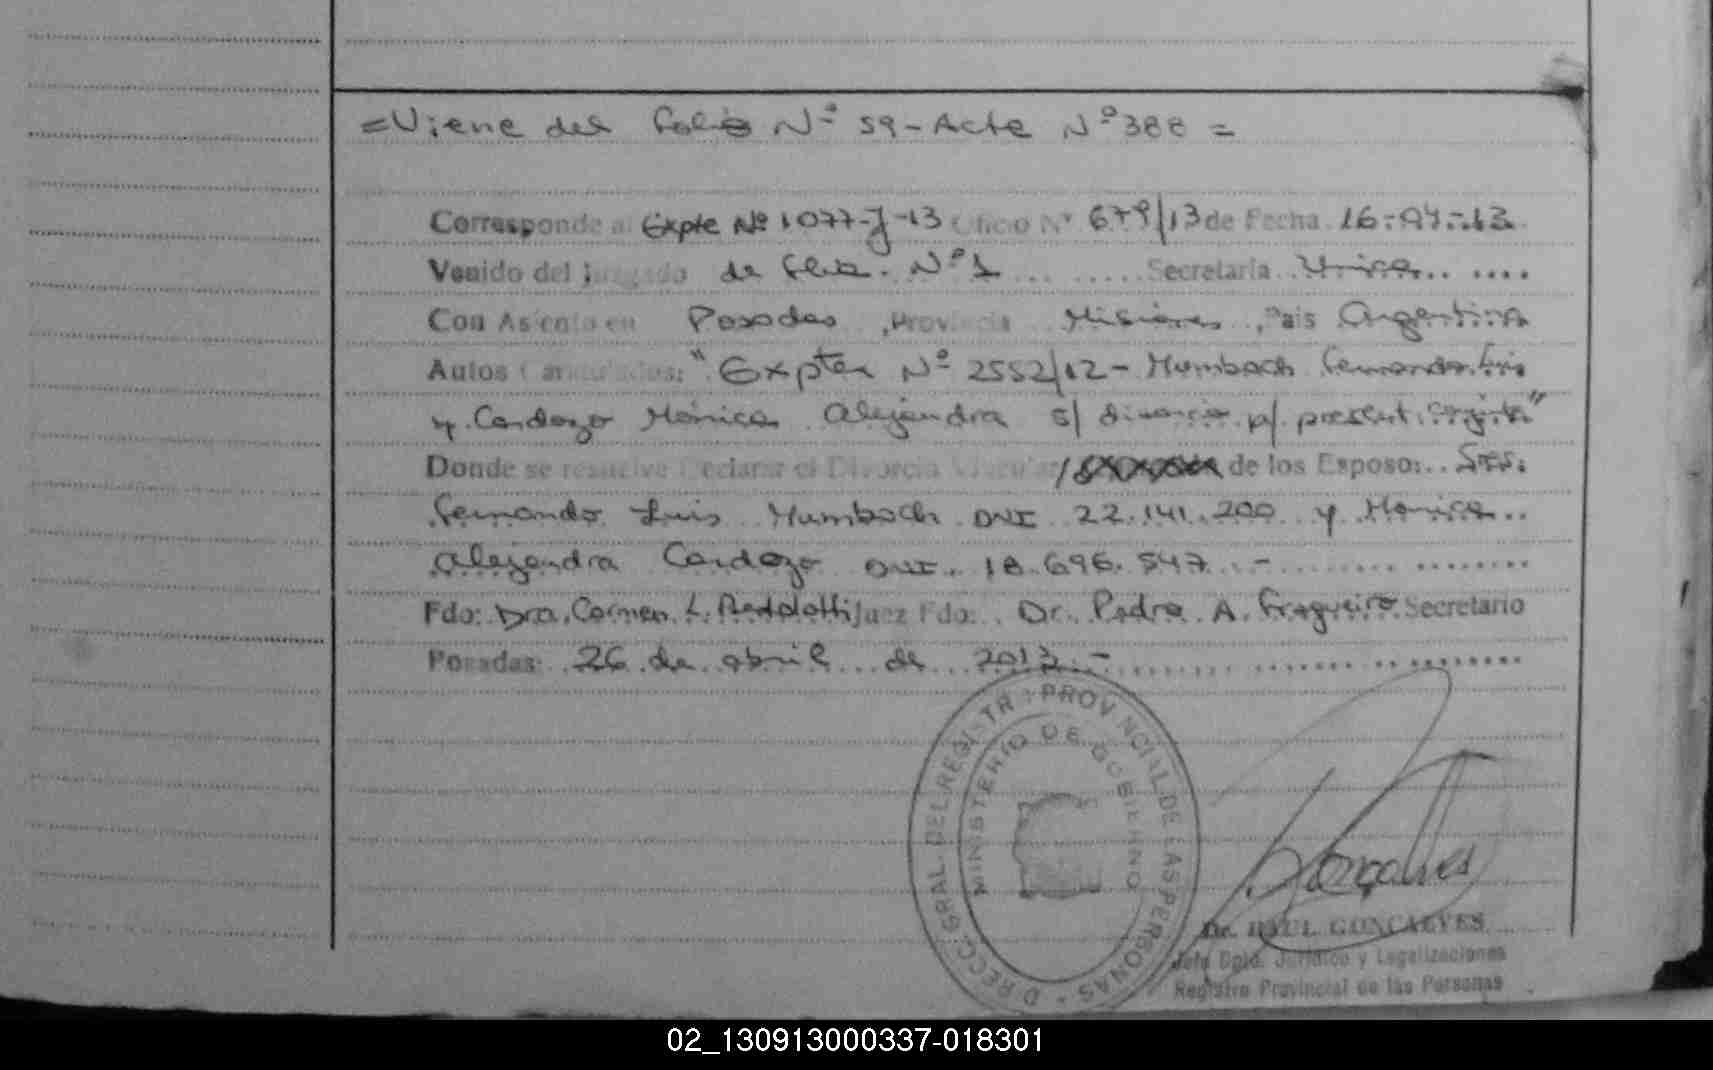 =Viene del folio Nº 59-Acta Nº388=
Corresponde al Expte Nº 1077-J-13 Oficio Nº 679/13 de Fecha 16-04-13
Venido del Juzgado de Flia. Nº1 Secretaria Unica
Con Asiento en Posadas, Provincia Misiones, Pais Argentina
Autos Caratulados: "Expte Nº 2552/12- Mumbach Fernando Luis
y Cardozo Mónica Alejandra s/ divorcio p/ present. conjunta"
Donde se resuelve Declarar el Divorcio Vincular/ de los Esposo: Sres.
Fernando Luis Mumbach DNI 22.141.200 y Monica
Alejandra Cardozo DNI. 18.696.547.-
Fdo: Dra. Carmen L. Juez Fdo: Dr. Pedro A. Fragueiro Secretario
Posadas: 26 de abril de 2013.-
DIRECC. GRAL. DEL REGISTR. PROVINCIAL DE LAS PERSONAS
MINISTERIO DE GOBIERNO
Gonçalves
Dr. RAUL GONCALVES
Jefe Dpto. Jurídico y Legalizaciones
Registro Provincial de las Personas
02_130913000337-018301